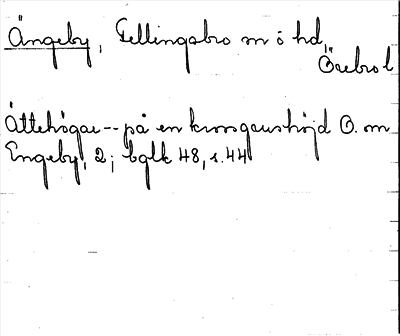 Ängeby, Fellingsbro sn ö hd,
Örebro l
Ättehögar -- på en krossgrushöjd O. om
Engeby, 2; bglk 48, s. 44